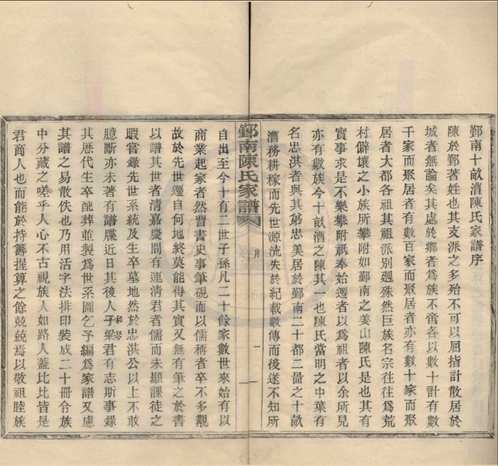 鄞南十畝漕陳氏家譜序
陳於鄞著姓也其支派之多殆不可以屈指計散居於
城者無論矣其處於鄉者爲族不啻各以數十計有數
千家而聚居者有數百家而聚居者亦有數十家而聚
居者大都各祖其祖別派殊然巨族名宗往往爲荒
村僻壤之小族所攀附如鄞南之姜山陳氏是也其有
實事求是不樂攀附祇奉始遷者以爲祖者以余所見
亦有數族今十畝漕之陳其一也陳氏當明之中葉有
名忠洪者與其弟忠美居於鄞南二十都二啚之十畝
漕務耕稼而先世源流失於紀載數傳而後遂不知所
鄞南陳氏家譜 序
自出至今十有二世子孫凡二十餘家數世來始有以
商業起家者然習書史事筆硯以儒稱者卒不多觀
故於先世遷自何地終莫能得其實又無有筆之於書
以譜其世者清嘉慶間有連清君者儒而未顯課徒之
暇嘗錄其先世系統及生卒墓地然於忠洪公以上不敢
臆斷亦未著有譜牒近日其後人子梁君有志斯事錄
其歷代生卒配葬並製爲世系圖乞予編爲家譜又慮
其譜之易散佚也乃用活字法排印裝成二十冊合族
中分藏之嗟乎人心不古視族人如路人蓋比比皆是
君商人也而能於持籌握算之餘兢兢焉以敬祖睦族